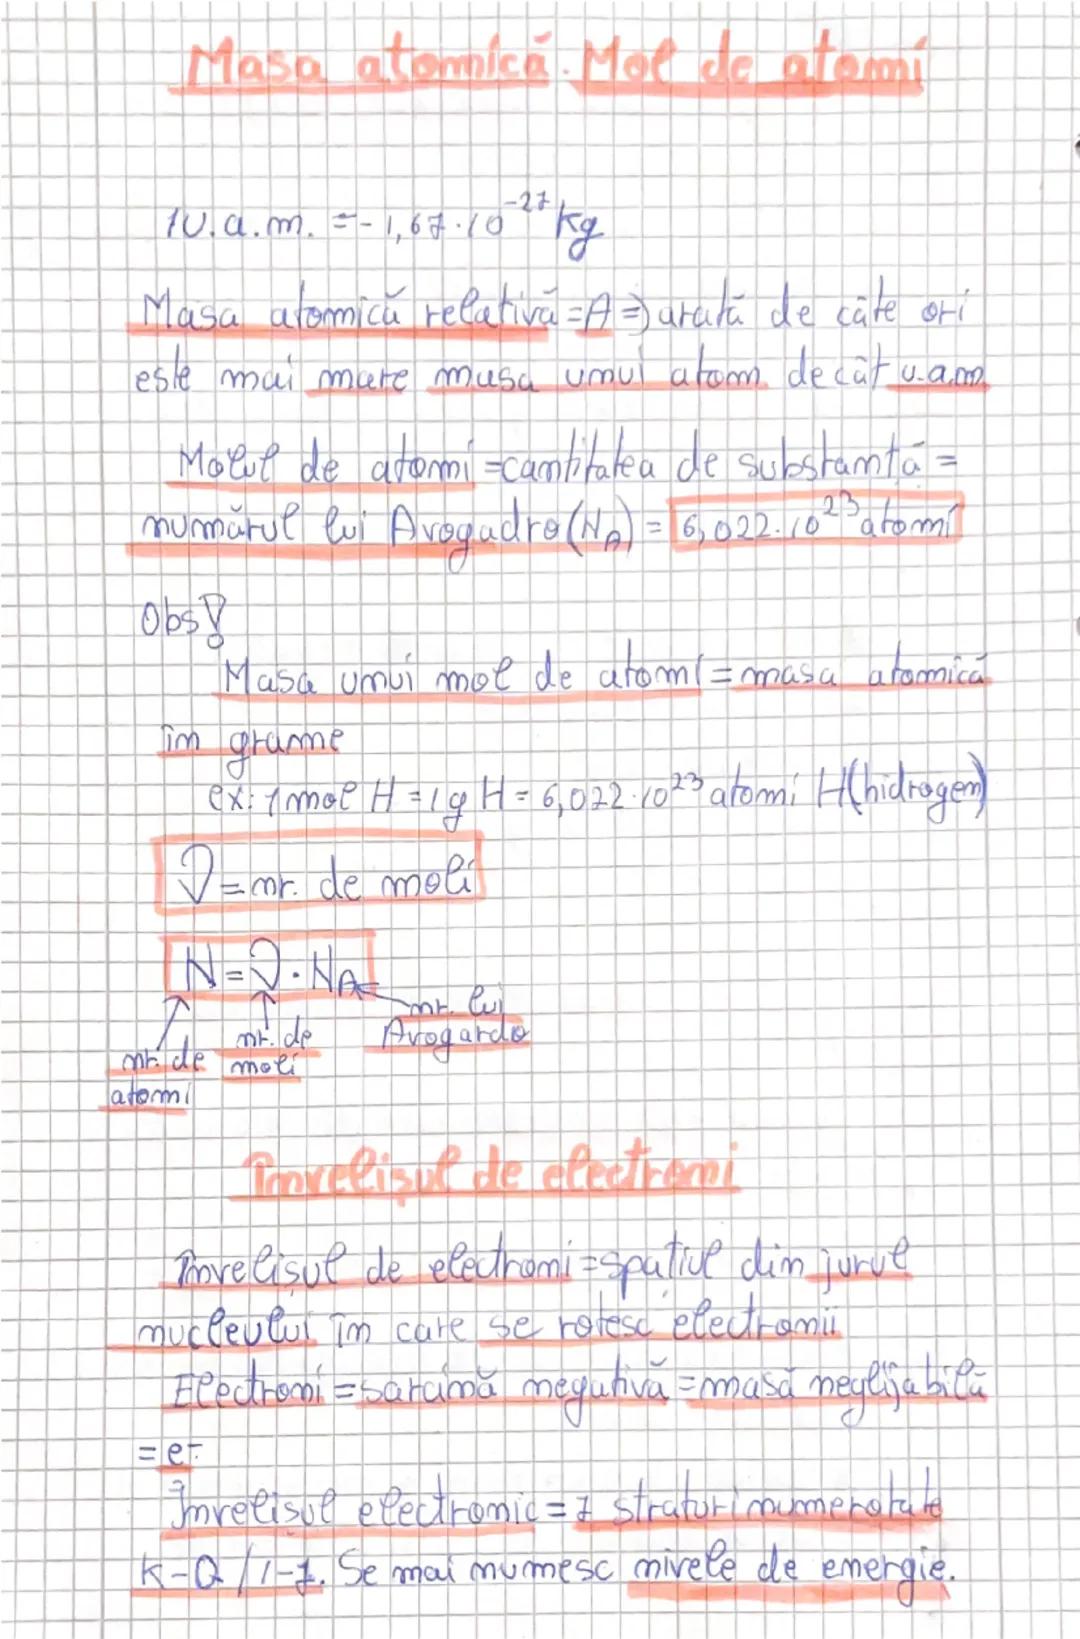 Masa atomică. Mol de atomi
1U.a.m. = - 1,67·10⁻²⁷ kg
Masa atomică relativă = A => arată de câte ori
este mai mare masa unui atom decât u.a.m
Molul de atomi = cantitatea de substanță =
numărul lui Avogadro (NA) = 6,022·10²³ atomi
Obs!
Masa unui mol de atomi = masa atomică
în grame
ex: 1 mol H = 1g H = 6,022·10²³ atomi H (hidrogen)
ν = nr. de moli
N = ν · NA
nr. lui
Avogardo
nr. de
moli
nr. de
atomi
Învelișul de electroni
Învelișul de electroni = spațiul din jurul
nucleului în care se rotesc electronii
Electroni = sarcină negativă = masă neglijabilă
= e-
Învelisul electronic = 7 straturi numerotate
K-Q / 1-7. Se mai numesc nivele de energie.